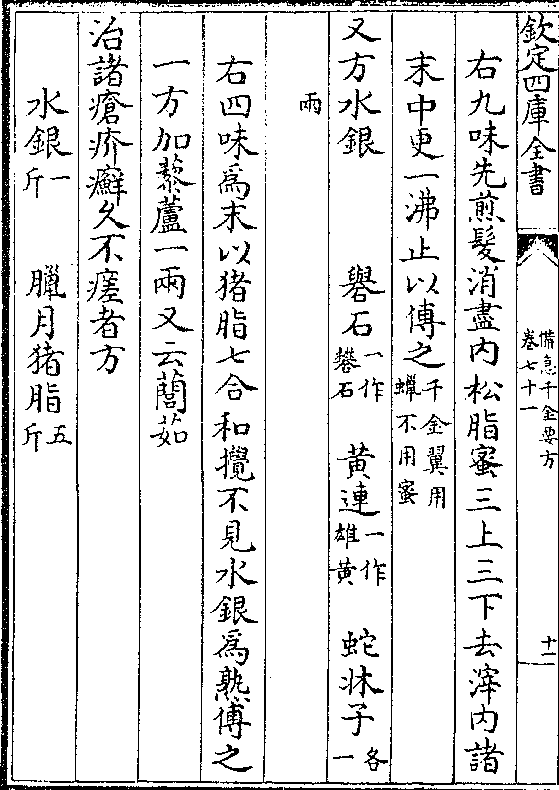 欽定四庫全書
備急千金要方
卷七十一
十一
右九味先煎髮消盡内松脂蜜三上三下去滓内諸
末中更一沸止以傅之千金翼用蠟不用蜜
又方水銀 礜石一作礬石 黄連一作雄黄 蛇牀子各一
兩
右四味為末以猪脂七合和攪不見水銀為熟傅之
一方加藜蘆一兩又云䕡茹
治諸瘡疥癬久不瘥者方
水銀一斤 臘月猪脂五斤